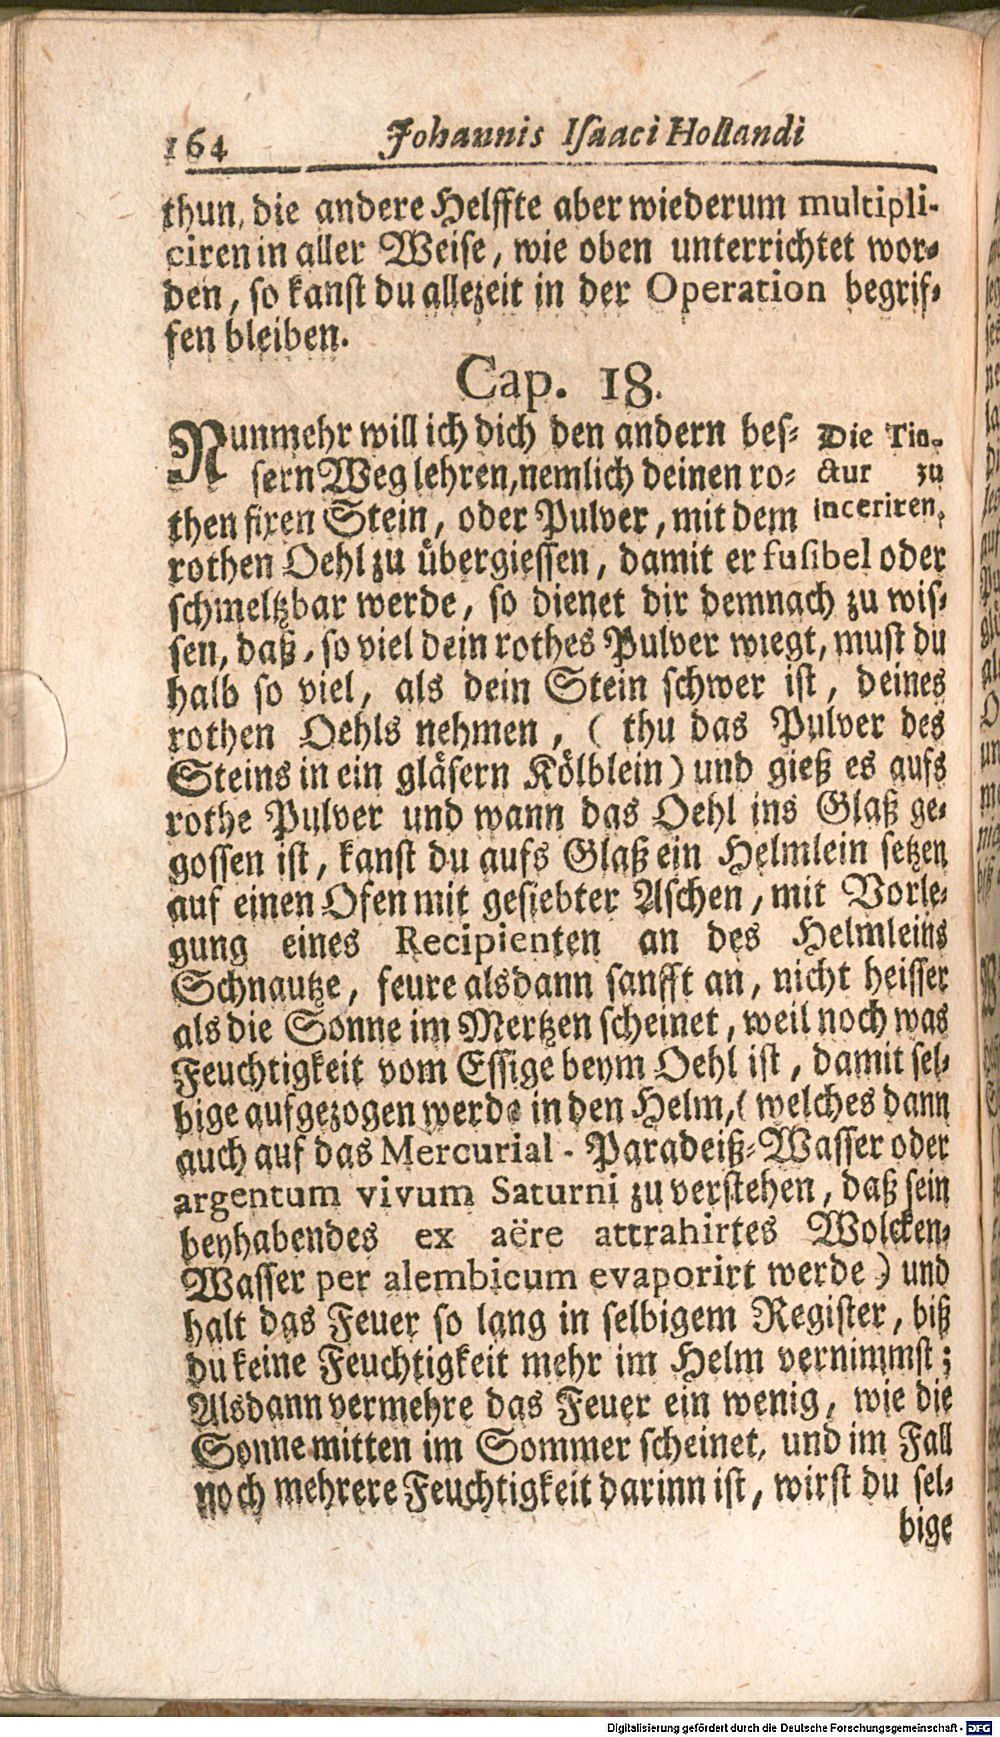 164 Johannis Isaaci Hollandi
thun, die andere Helffte aber wiederum multipli-
ciren in aller Weise, wie oben unterrichtet wor-
den, so kanst du allezeit in der Operation begrif-
fen bleiben.
Cap. 18.
Nunmehr will ich dich den andern bes-
sern Weg lehren, nemlich deinen ro-
then fixen Stein, oder Pulver, mit dem
Die Tin-
ctur zu
inceriren.
rothen Oehl zu übergiessen, damit er fusibel oder
schmeltzbar werde, so dienet dir demnach zu wis-
sen, daß, so viel dein rothes Pulver wiegt, must du
halb so viel, als dein Stein schwer ist, deines
rothen Oehls nehmen, ( thu das Pulver des
Steins in ein gläsern Kölblein) und gieß es aufs
rothe Pulver und wann das Oehl ins Glaß ge-
gossen ist, kanst du aufs Glaß ein Helmlein setzen
auf einen Ofen mit gesiebter Aschen, mit Vorle-
gung eines Recipienten an des Helmleins
Schnautze, feure alsdann sanfft an, nicht heisser
als die Sonne im Mertzen scheinet, weil noch was
Feuchtigkeit vom Essige beym Oehl ist, damit sel-
bige aufgezogen werde in den Helm, ( welches dann
auch auf das Mercurial-Paradeiß-Wasser oder
argentum vivum Saturni zu verstehen, daß sein
beyhabendes ex aëre attrahirtes Wolcken-
Wasser per alembicum evaporirt werde ) und
halt das Feuer so lang in selbigem Register, biß
du keine Feuchtigkeit mehr im Helm vernimmst;
Alsdann vermehre das Feuer ein wenig, wie die
Sonne mitten im Sommer scheinet, und im Fall
noch mehrere Feuchtigkeit darinn ist, wirst du sel-
bige
Digitalisierung gefördert durch die Deutsche Forschungsgemeinschaft - DFG